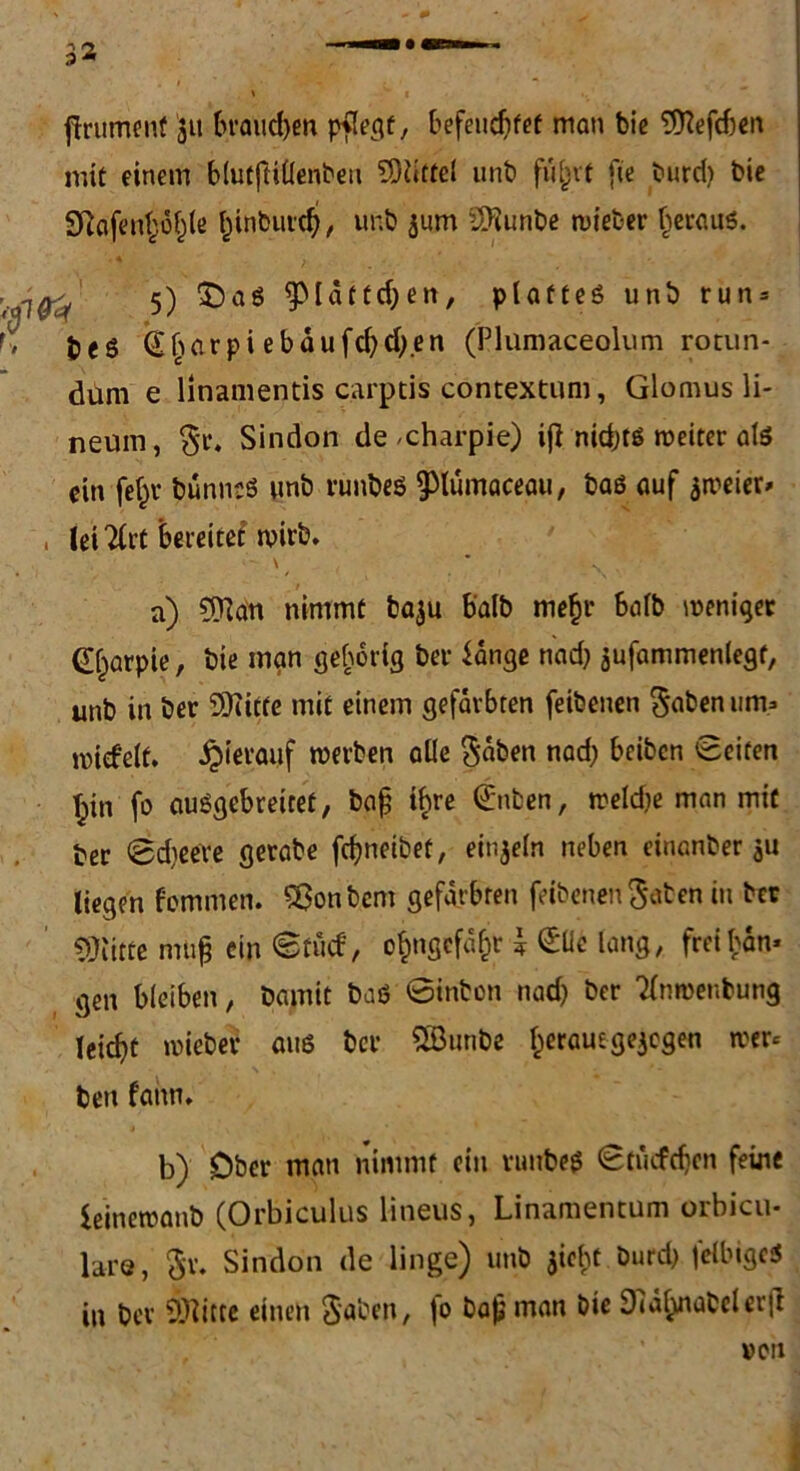 32
strument zu brauchen pflegt, befeuchtet man die Meschen
mit einem blutstillenden Mittel und führt sie durch die
Nasenhöhle hindurch, und zum Munde wieder heraus.
5) Das Plättchen, plattes und run-
des Charpiebäuschchen (Plumaceolum rotun-
dum e linamentis carptis contextum, Glomus li-
neum, Fr. Sindon de charpie) ist nichts weiter als
ein sehr dünnes und rundes Plümaceau, das auf zweier-
lei Art bereitet wird.
a) Man nimmt dazu bald mehr bald weniger
Charpie, die man gehörig der Länge nach zusammenlegt,
und in der Mitte mit einem gefärbten seidenen Faden um-
wickelt. Hierauf werden alle Fäden nach beiden Seiten
hin so ausgebreitet, daß ihre Enden, welche man mit
der Scheere gerade schneidet, einzeln neben einander zu
liegen kommen. Von dem gefärbten seidenen Faden in der
Mitte muß ein Stück, ohngefähr ¼ Elle lang, frei hän-
gen bleiben, damit das Sindon nach der Anwendung
leicht wieder aus der Wunde herausgezogen wer-
den kann.
b) Oder man nimmt ein rundes Stückchen feine
Leinewand (Orbiculus lineus, Linamentum orbicu-
lare, Fr. Sindon de linge) und zieht durch selbiges
in der Mitte einen Faden, so daß man die Nähnadel erst
von